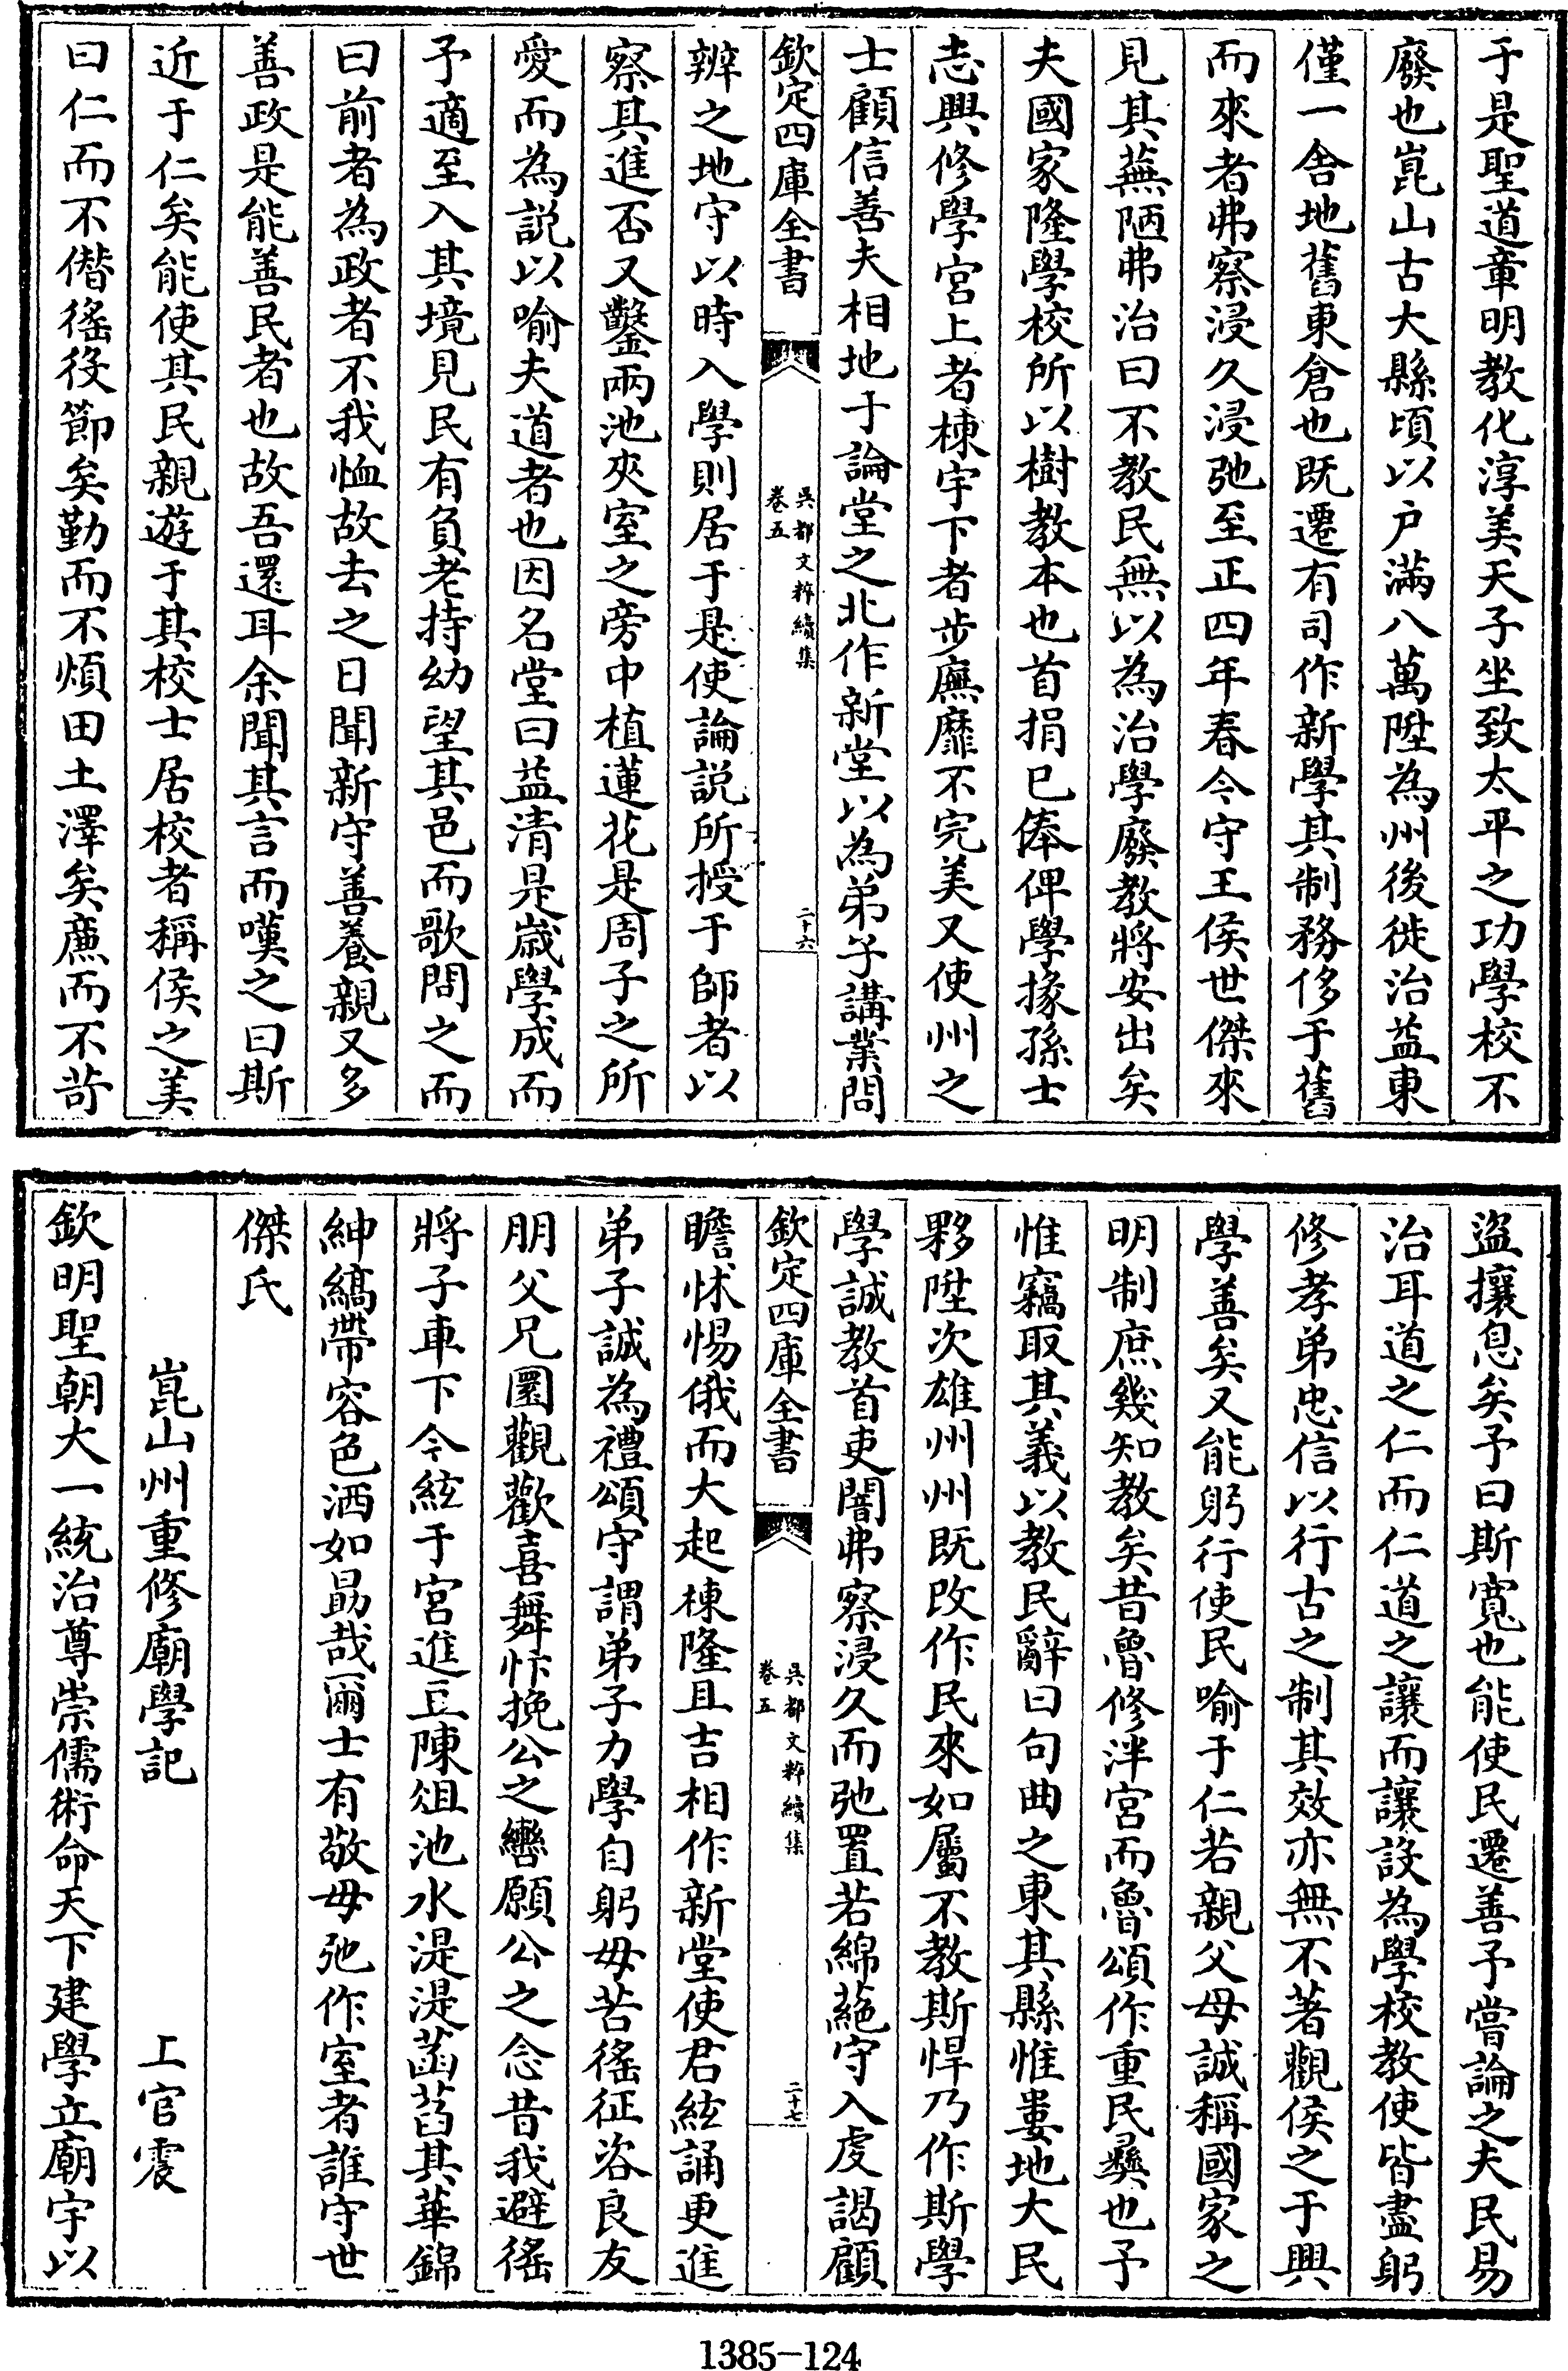 于是聖道章明教化淳美天子坐致太平之功學校不
廢也崑山古大縣頃以户滿八萬陞為州後徙治益東
僅一舍地舊東倉也既遷有司作新學其制務侈于舊
而來者弗察浸久浸弛至正四年春今守王侯世傑來
見其蕪陋弗治曰不教民無以為治學廢教將安出矣
夫國家隆學校所以樹教本也首捐已俸俾學掾孫士
志興修學宫上者棟宇下者步廡靡不完美又使州之
士顧信善夫相地于論堂之北作新堂以為弟子講業問
欽定四庫全書
吳都文粹續集
卷五
二十六
辨之地守以時入學則居于是使論説所授于師者以
察其進否又鑿兩池夾室之旁中植蓮花是周子之所
愛而為説以喻夫道者也因名堂曰益清是嵗學成而
予適至入其境見民有負老持幼望其邑而歌問之而
曰前者為政者不我恤故去之日聞新守善養親又多
善政是能善民者也故吾還耳余聞其言而嘆之曰斯
近于仁矣能使其民親遊于其校士居校者稱侯之美
曰仁而不偺徭役節矣勤而不煩田土澤矣亷而不苛
盜攘息矣予曰斯寛也能使民遷善予嘗論之夫民易
治耳道之仁而仁道之讓而讓設為學校教使皆盡躬
修孝弟忠信以行古之制其效亦無不著觀侯之于興
學善矣又能躬行使民喻于仁若親父母誠稱國家之
明制庶幾知教矣昔魯修泮宫而魯頌作重民彝也予
惟竊取其義以教民辭曰句曲之東其縣惟婁地大民
夥陞次雄州州既改作民來如屬不教斯悍乃作斯學
學誠教首吏闇弗察浸久而弛置若綿蕝守入䖍謁顧
欽定四庫全書
吳都文粹續集
卷五
二十七
瞻怵惕俄而大起棟隆且吉相作新堂使君絃誦更進
弟子誠為禮頌守謂弟子力學自躬毋苦徭征咨良友
朋父兄圜觀歡喜舞忭挽公之轡願公之念昔我避徭
將子車下今絃于宫進豆陳俎池水湜湜菡萏其華錦
紳縞帶容色洒如勗哉爾士有敬毋弛作室者誰守世
傑氏
崑山州重修廟學記
上官震
欽明聖朝大一統治尊崇儒術命天下建學立廟宇以
1385-124